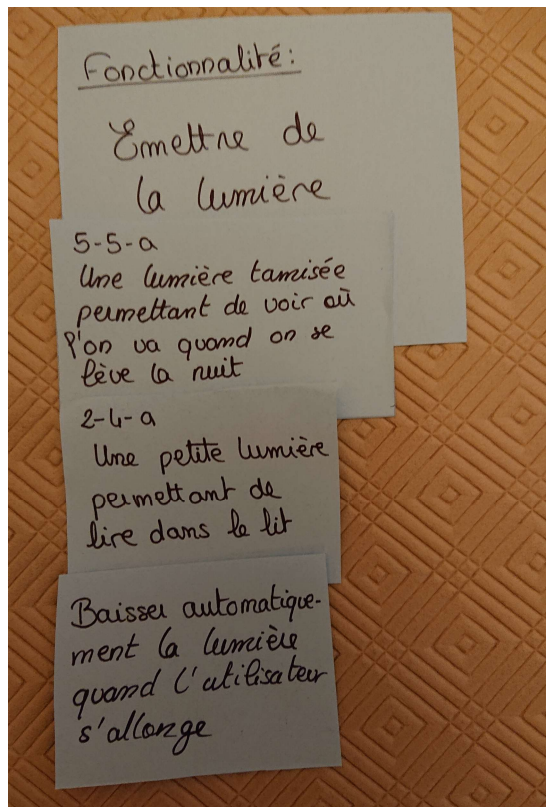 Fonctionnalité:
Emettre de
la lumière
5-5-a
Une lumière tamisée
permettant de voir où
l'on va quand on se
lève la nuit
2-4-a
Une petite lumière
permettant de
lire dans le lit
Baisser automatique-
ment la lumière
quand l'utilisateur
s'allonge